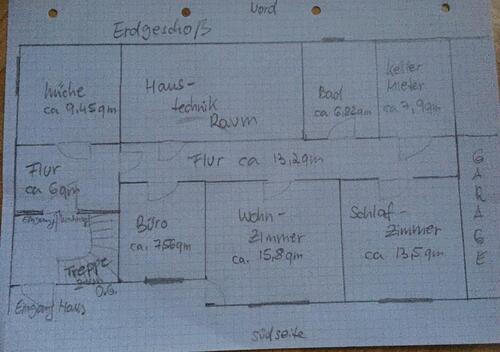 Nord
Erdgeschoß
Küche
ca 9,45qm
Haus-
technik
Raum
Bad
ca 6,82qm
Keller
Mieter
ca 7,9qm
Flur
ca 6qm
Flur ca 13,2qm
GARAGE
Eingang Wohnung
Büro
ca. 7,56qm
Wohn-
zimmer
ca. 15,8qm
Schlaf-
zimmer
ca 13,5qm
Treppe
O.G.
Eingang Haus
Südseite